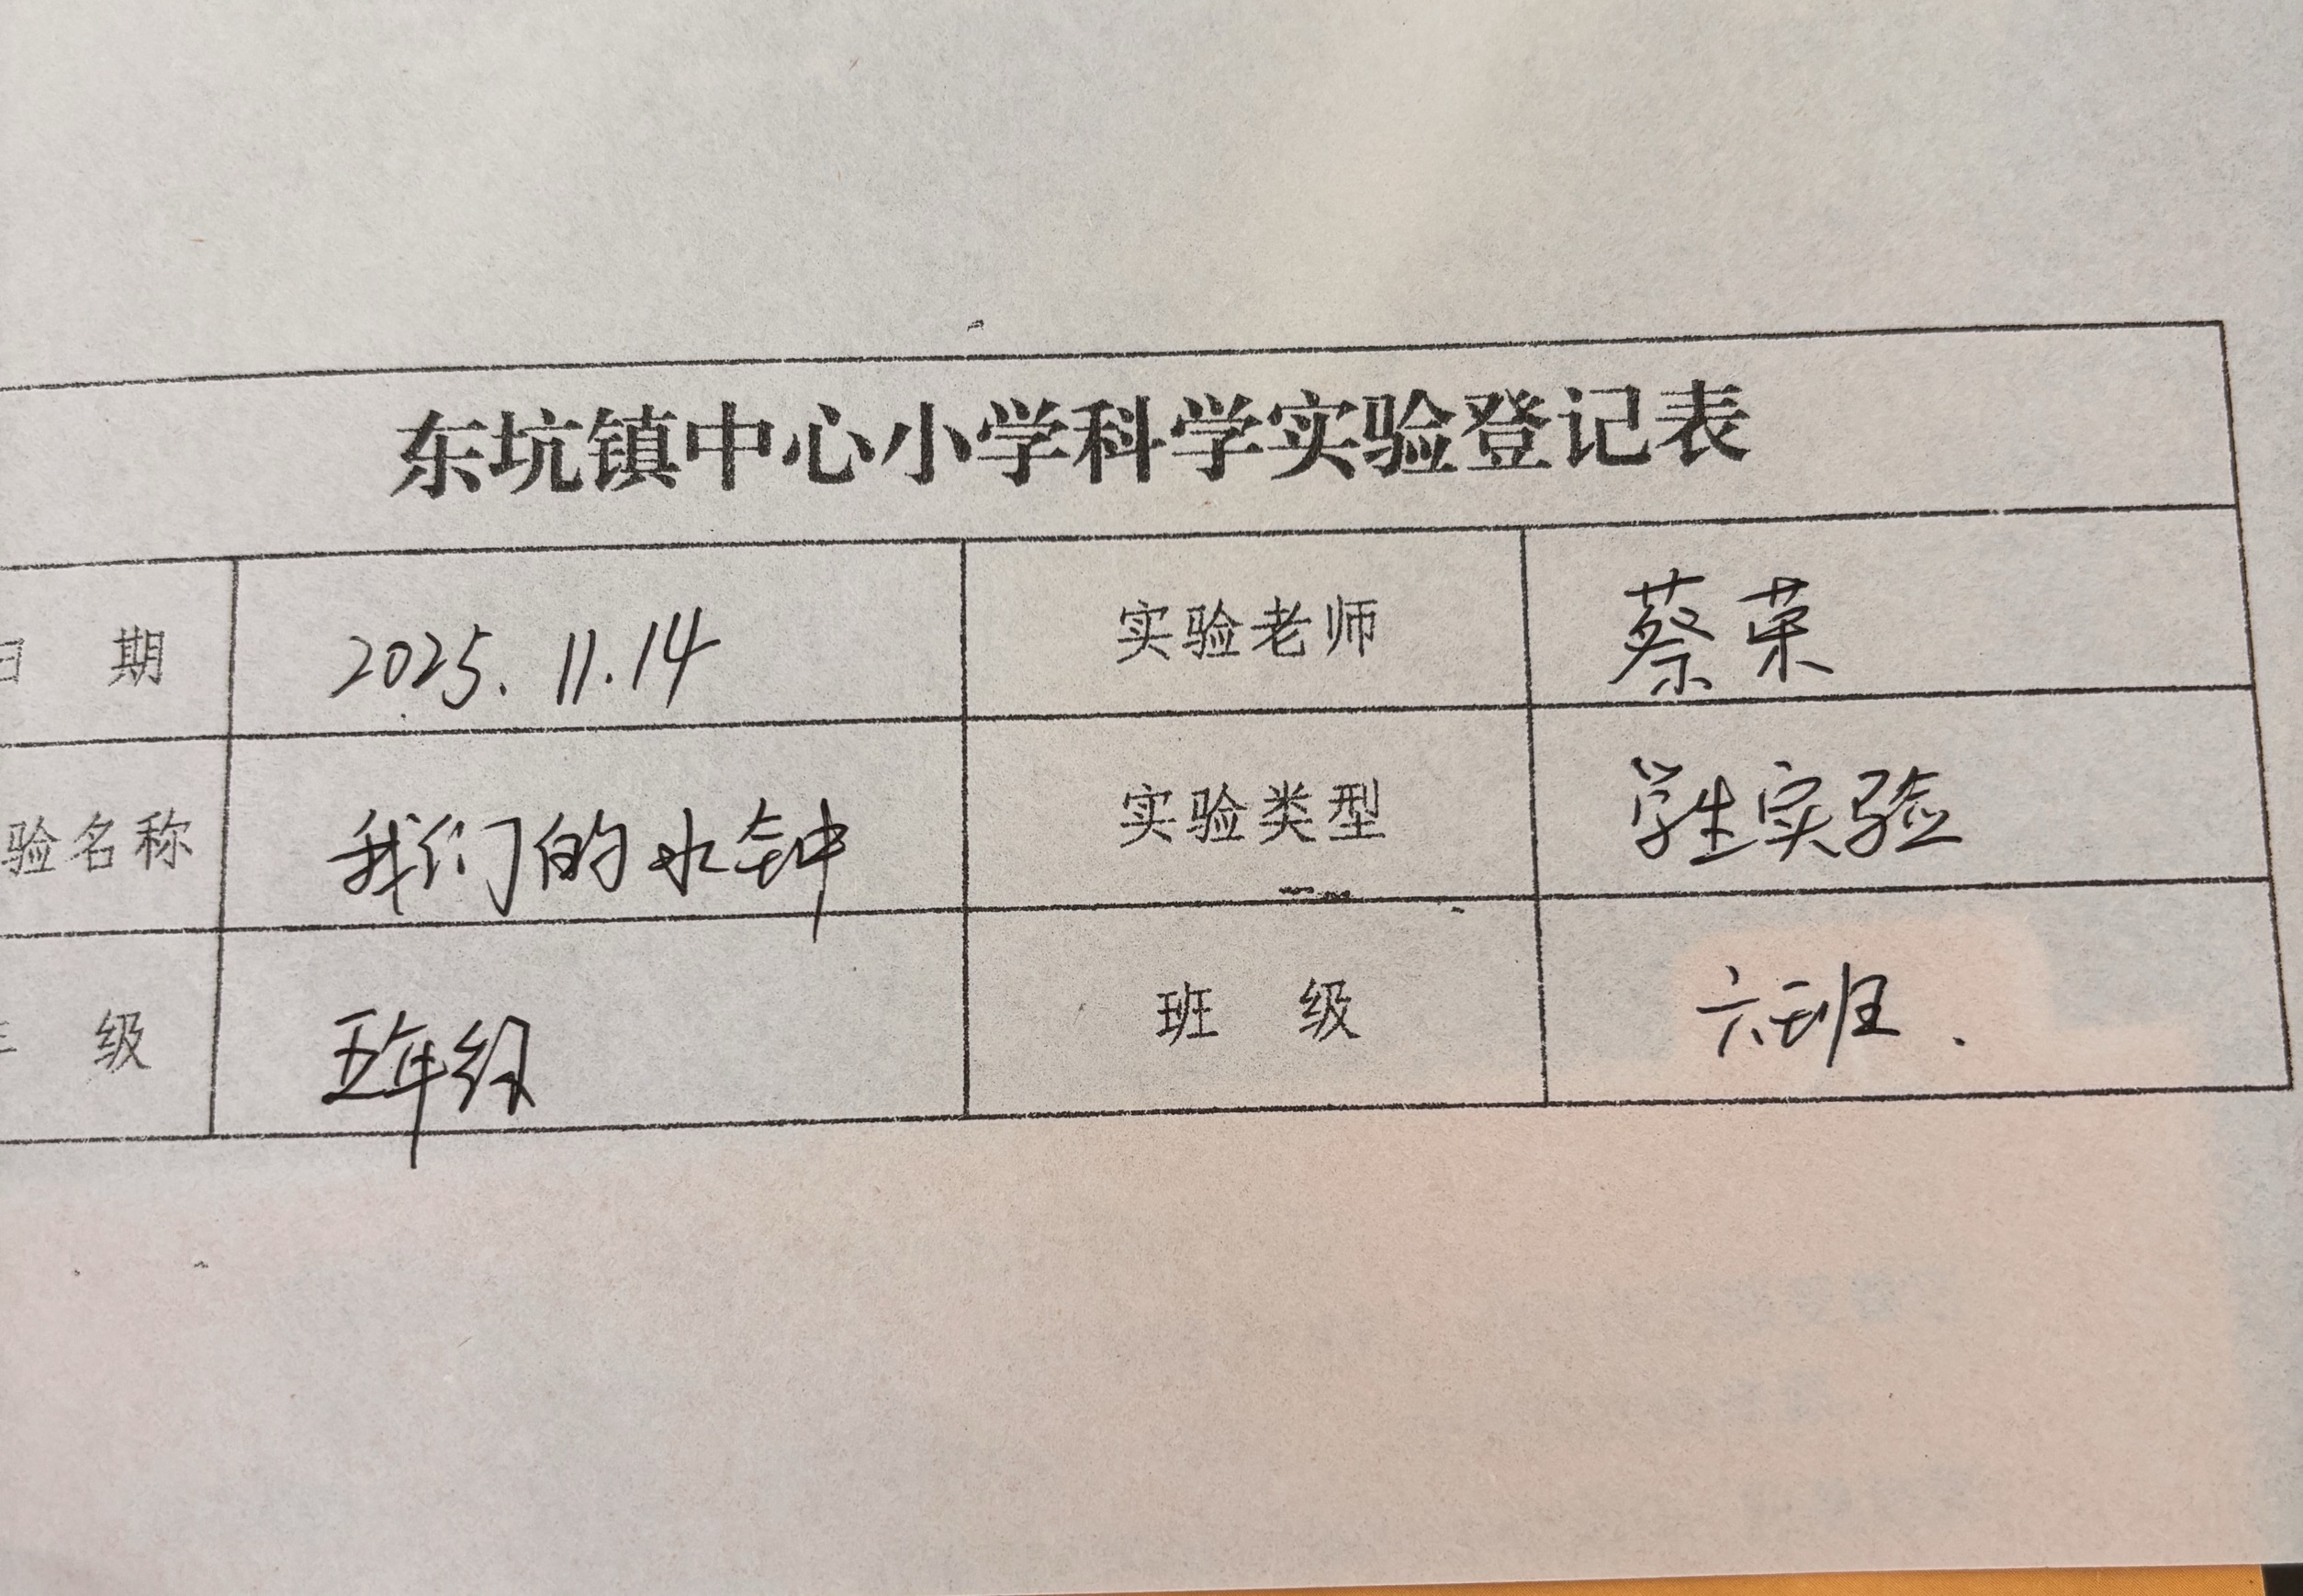 东坑镇中心小学科学实验登记表
日 期 2025.11.14 实验老师 蔡荣
验名称 我们的水钟 实验类型 学生实验
级 五年级 班 级 六班.